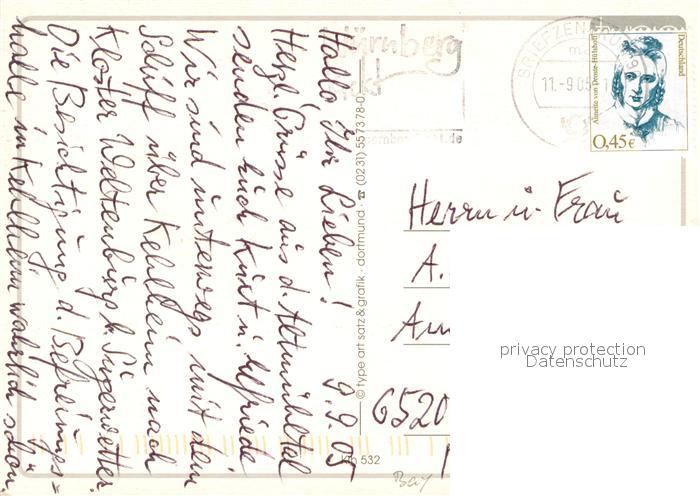 Hallo Ihr Lieben! 9.9.05
Herzl. Grüsse aus d. Altmühltal
senden Euch Knut u. Elfriede
Wir sind unterwegs mit dem
Schiff über Kehlheim nach
Kloster Weltenburg b. Superwetter.
Die Besichtigung d. Befreiungs=
halle in Kehlheim wahrlich schön.
© type art satz & grafik · dortmund · ☎ (0231) 557378-0
Kth 532
Nürnberg
BRIEFZENTRUM
11.-9.05
Deutschland
Annette von Droste-Hülshoff
0,45€
Herrn u. Frau
A.
Am
6520
privacy protection
Datenschutz